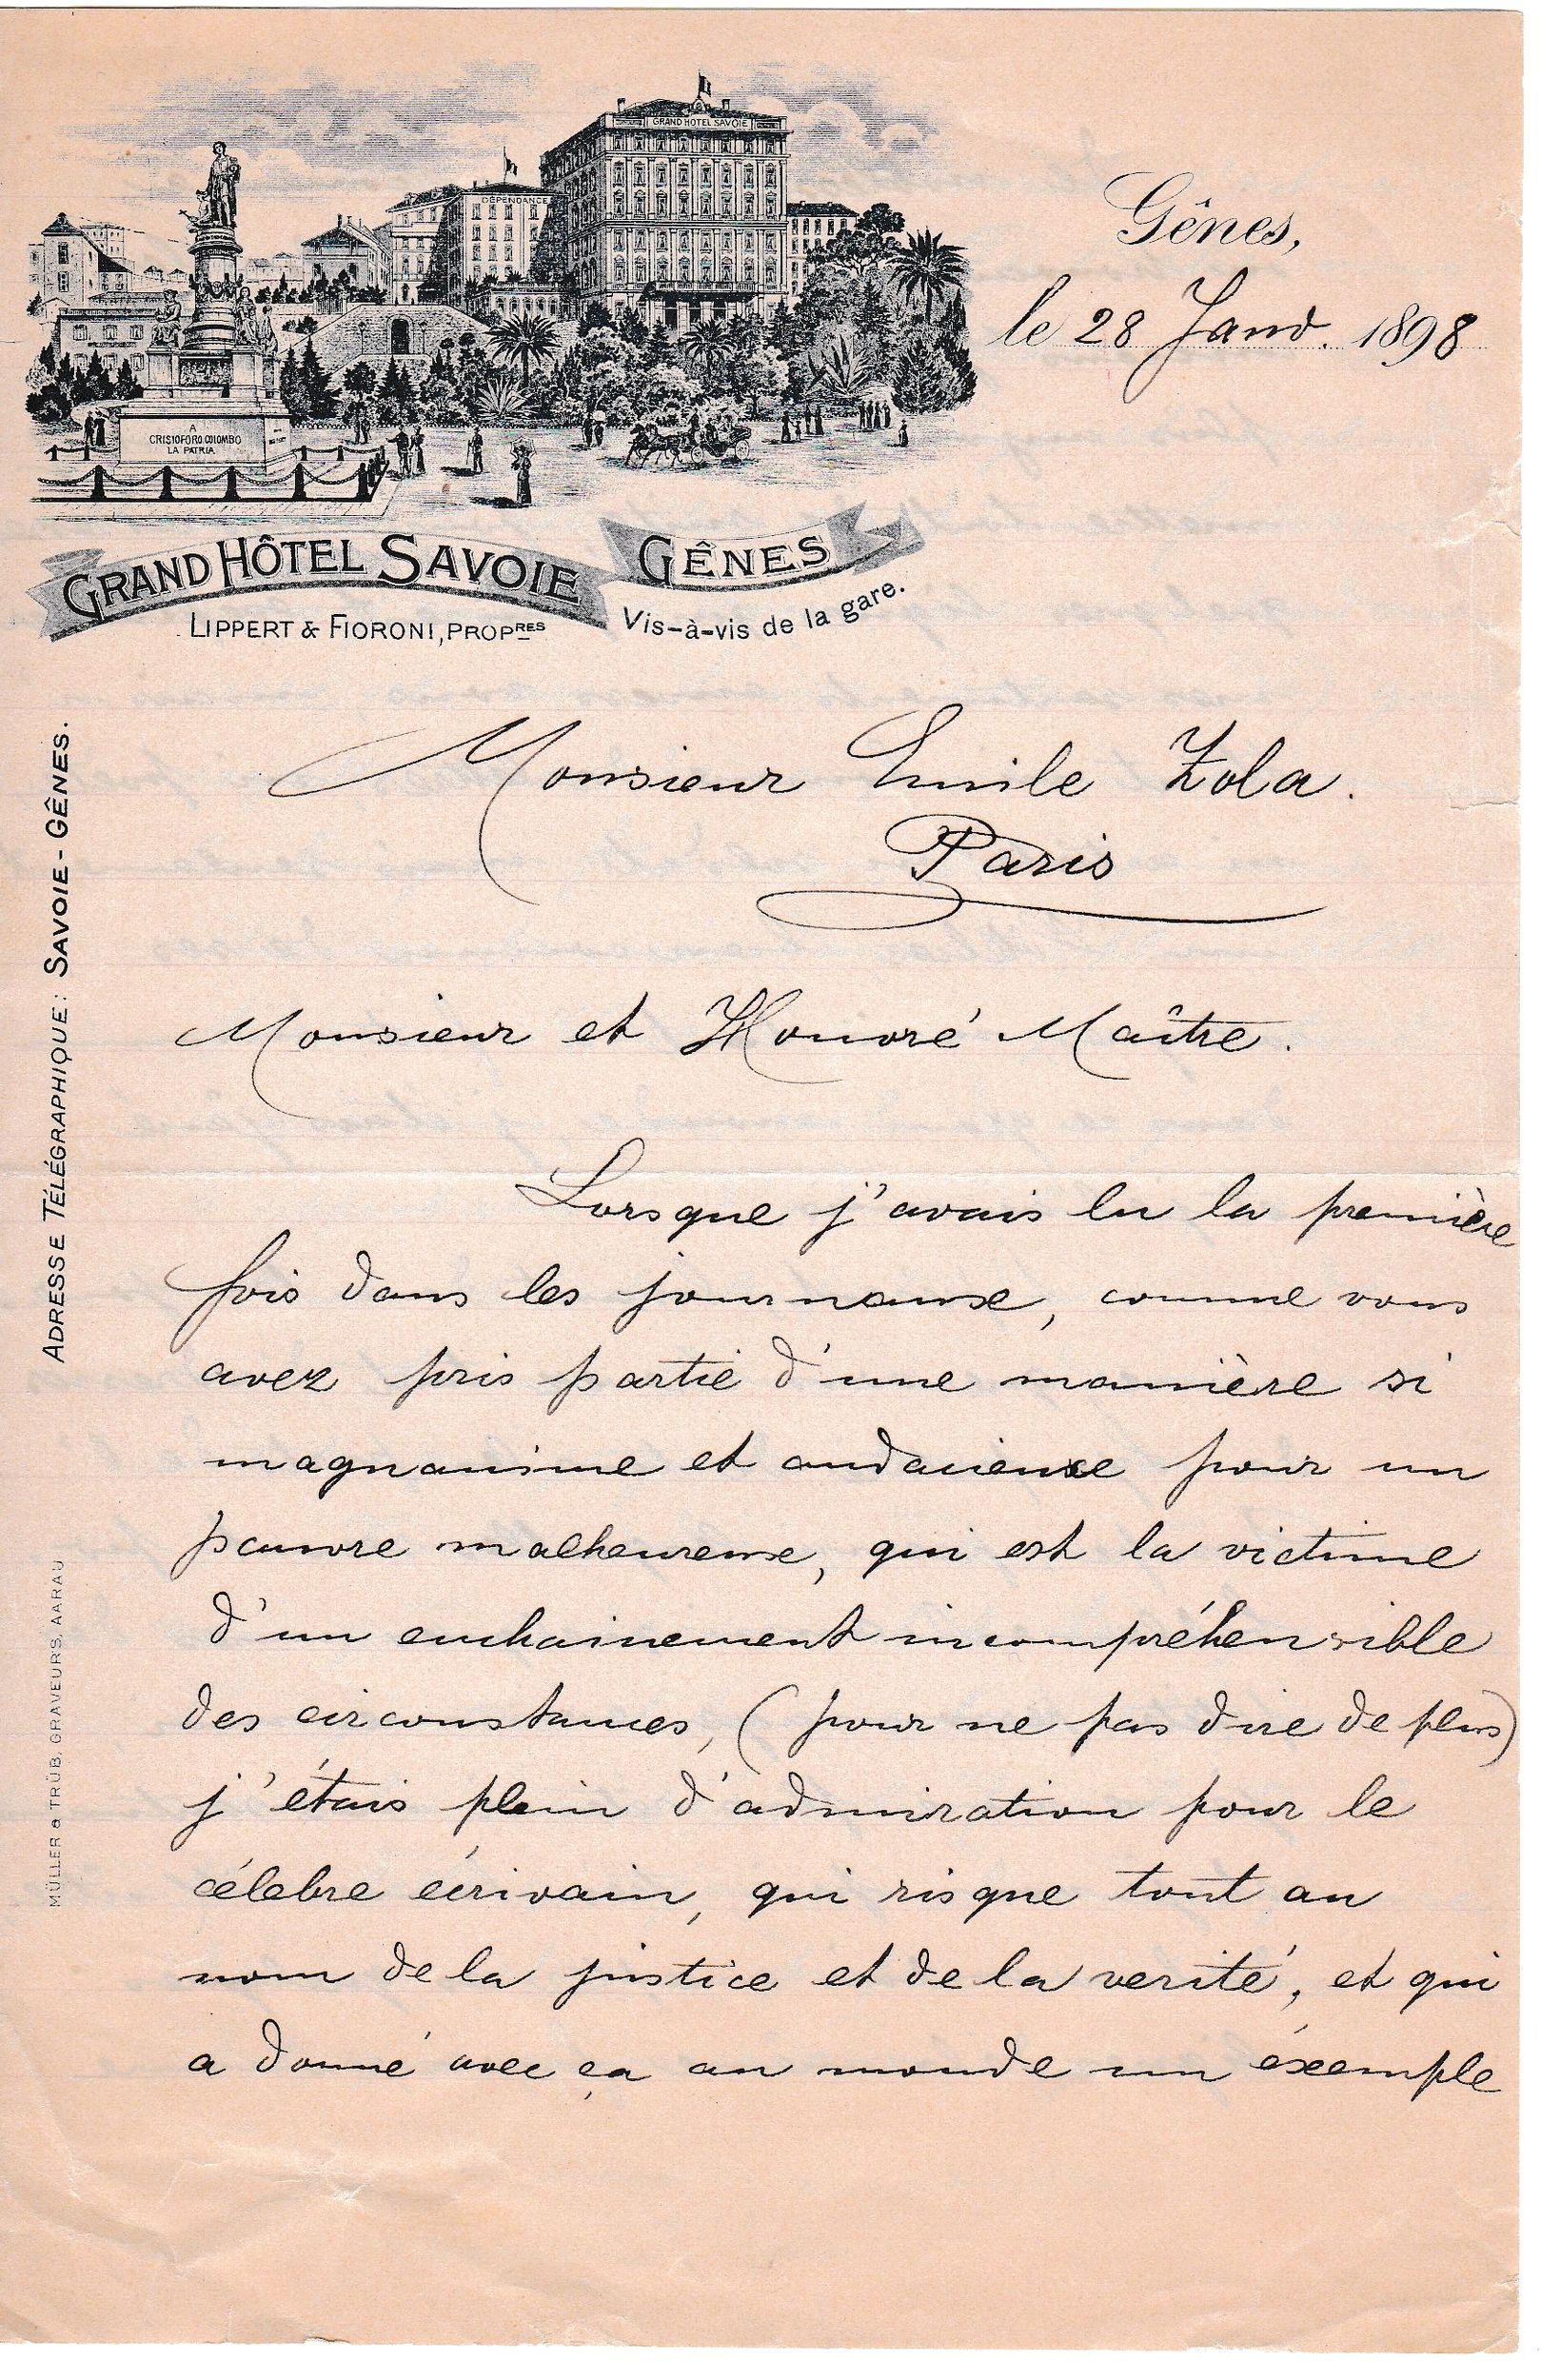 GRAND HOTEL SAVOIE
DÉPENDANCE
A
CRISTOFORO COLOMBO
LA PATRIA
GRAND HÔTEL SAVOIE GÊNES
LIPPERT & FIORONI, PROPRES Vis-à-vis de la gare.
Gênes,
le 28 Janv. 1898
ADRESSE TÉLÉGRAPHIQUE: SAVOIE - GÊNES.
MÜLLER & TRÜB, GRAVEURS, AARAU
Monsieur Emile Zola.
Paris
Monsieur et Honoré Maître.
Lorsque j'avais lu la première
fois dans les journeaux, comme vous
avez pris partie d'une manière si
magnanime et audacieuse pour un
pauvre malheureux, qui est la victime
d'un enchainement incompréhensible
des circonstances, (pour ne pas dire de plus)
j'étais plein d'admiration pour le
célebre écrivain, qui risque tout au
nom de la justice et de la verité, et qui
a donné avec ça au monde un éxemple